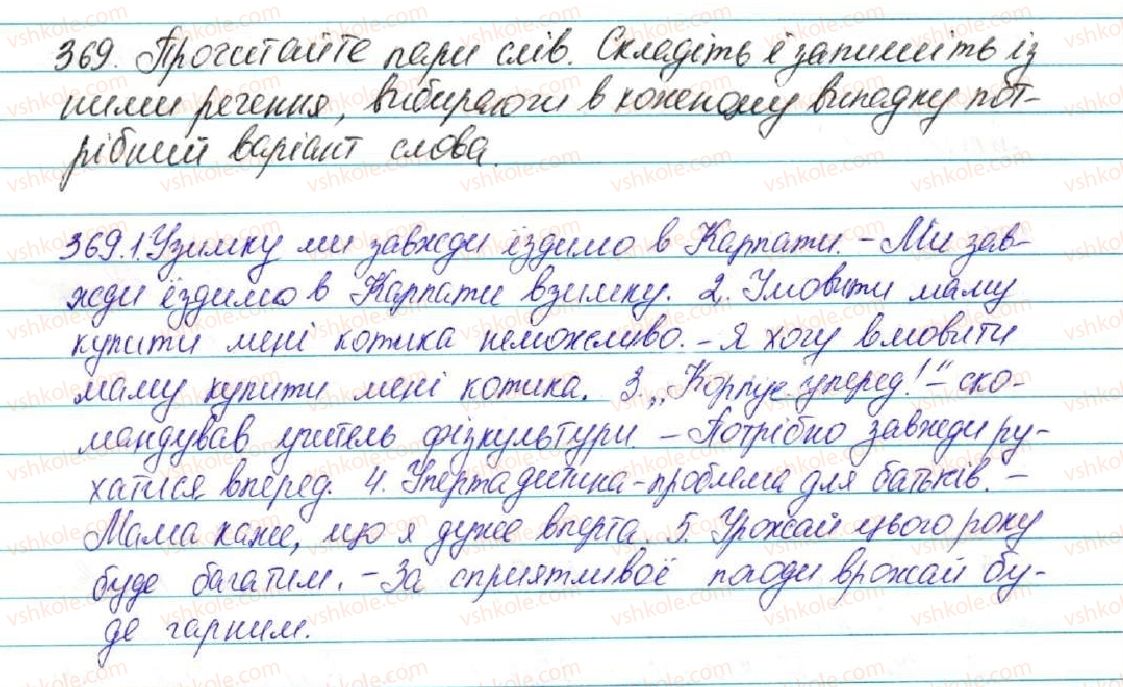 369. Прочитайте пари слів. Складіть і запишіть із
ними речення, вибираючи в кожному випадку пот-
рібний варіант слова.
369.1. Узимку ми завжди їздимо в Карпати. – Ми зав-
жди їздимо в Карпати взимку. 2. Умовити маму
купити мені котика неможливо. – Я хочу вмовити
маму купити мені котика. 3. „Корпус уперед!" – ско-
мандував учитель фізкультури. – Потрібно завжди ру-
хатися вперед. 4. Уперта дитина – проблема для батьків. –
Мама каже, що я дуже вперта. 5. Урожай цього року
буде багатим. – За сприятливої погоди врожай бу-
де гарним.